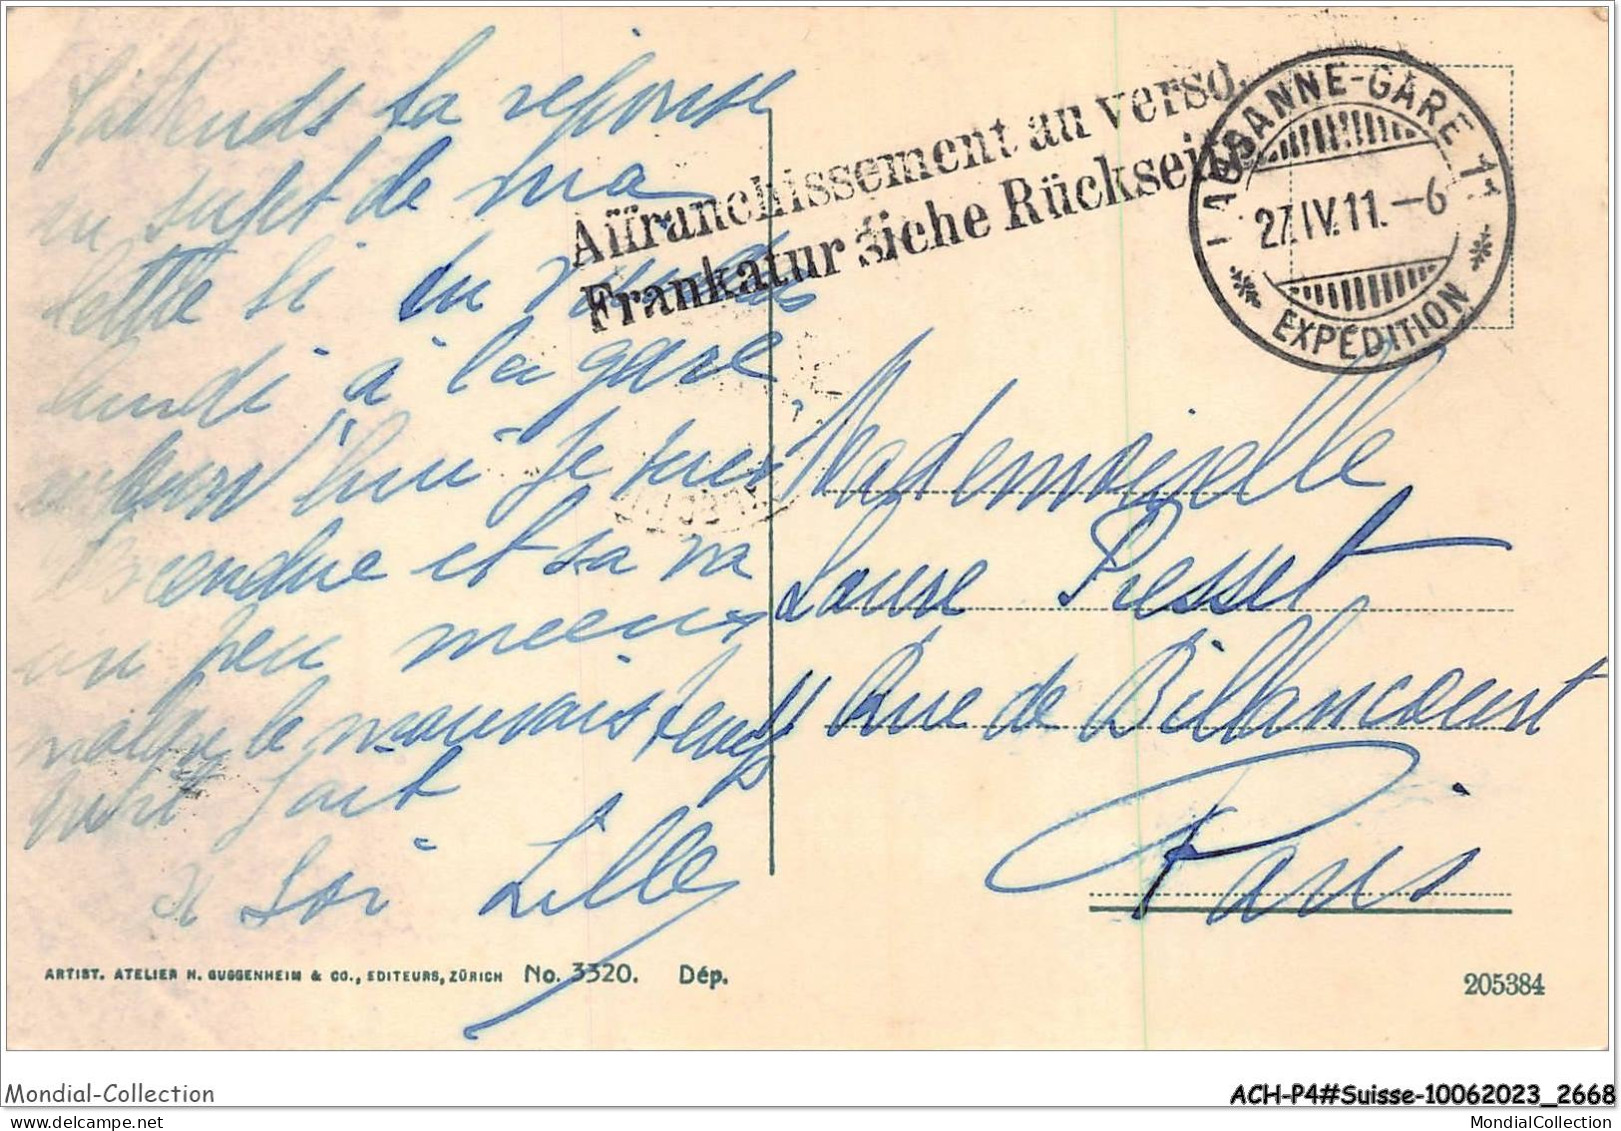 J'attends ta réponse
au sujet de ma
lettre si tu
lundi à la gare,
aujourd'hui je suis
descendue et sa va
un peu mieux
malgré le mauvais temps
qu'il fait
à toi Lille
Affranchissement au verso.
Frankatur siehe Rückseite
LAUSANNE-GARE 11
27.IV.11.-6
EXPÉDITION
Mademoiselle
Laure Presset
Rue de Billancourt
Paris
ARTIST. ATELIER H. GUGGENHEIM & CO., EDITEURS, ZÜRICH No. 3320. Dép.
205384
Mondial-Collection
ACH-P4#Suisse-10062023_2668
MondialCollection
MondialCollection